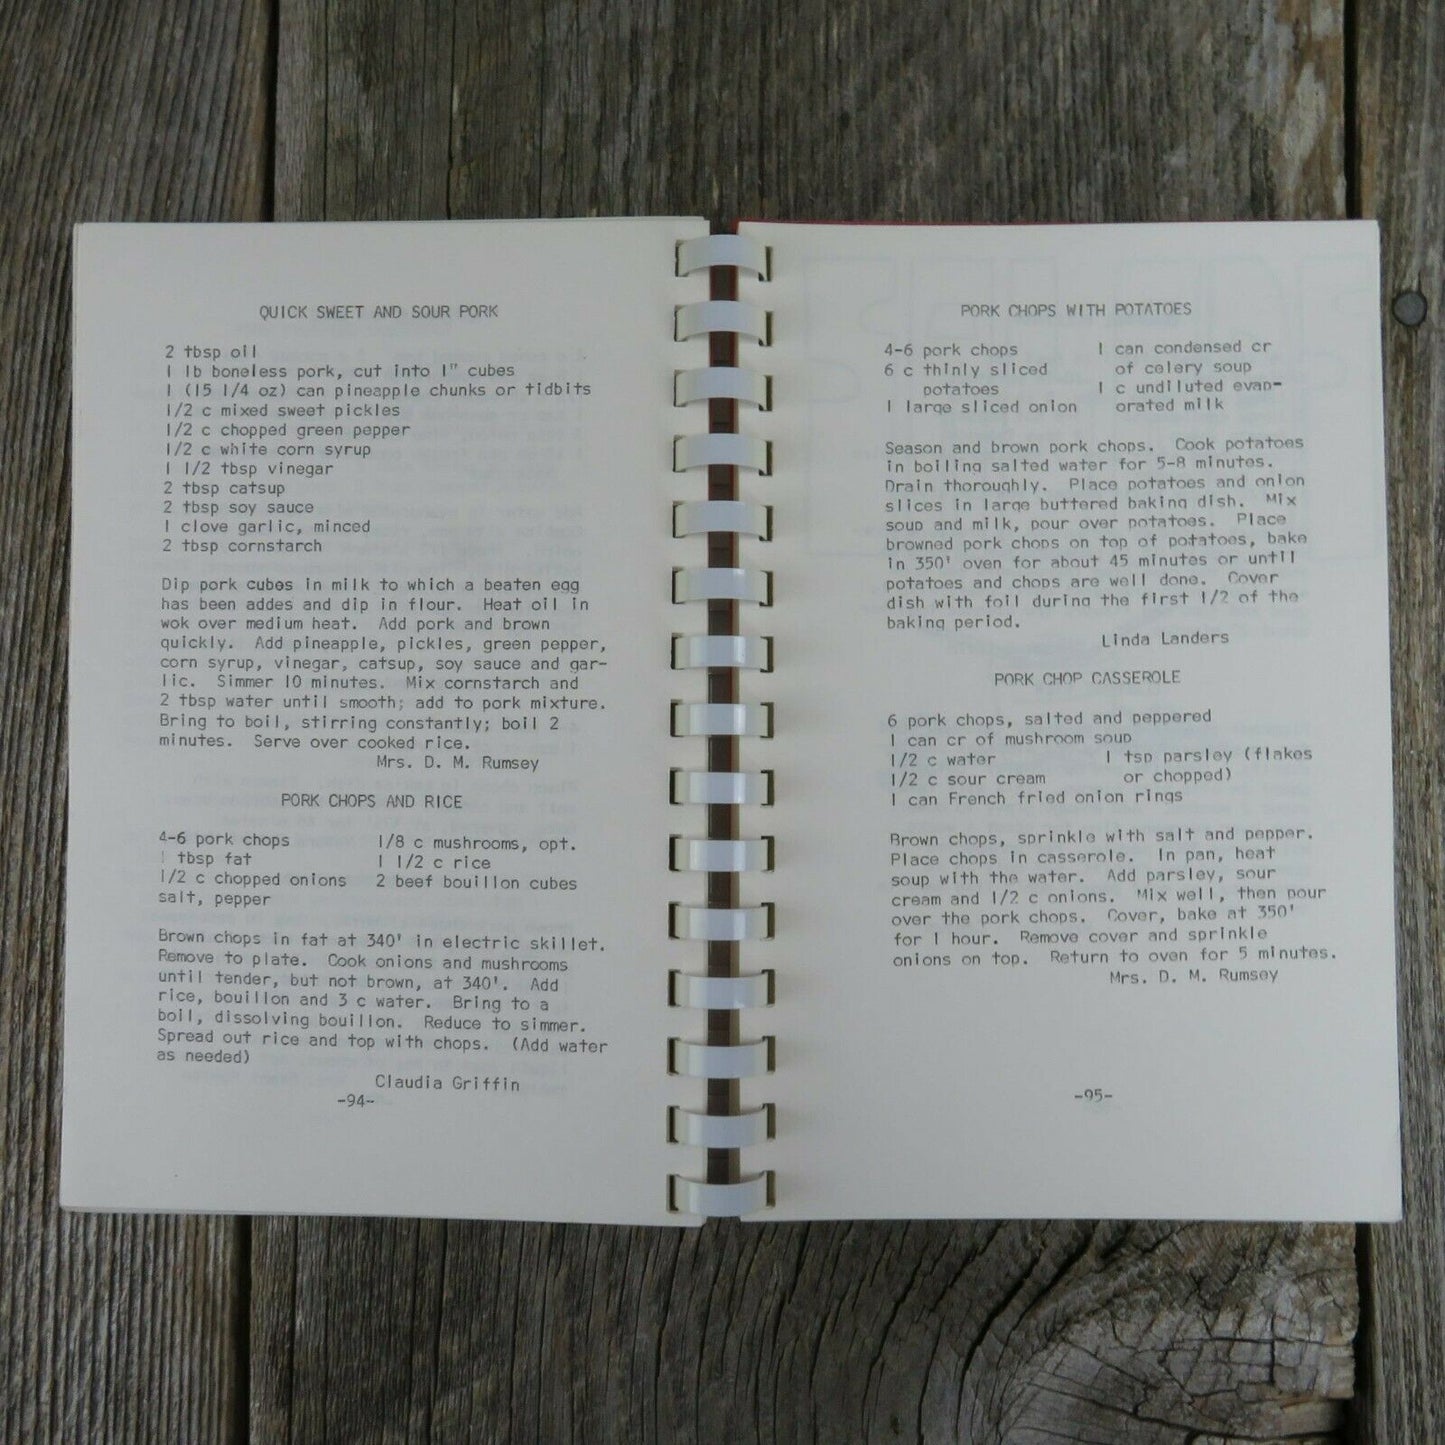 QUICK SWEET AND SOUR PORK
2 tbsp oil
1 lb boneless pork, cut into 1" cubes
1 (15 1/4 oz) can pineapple chunks or tidbits
1/2 c mixed sweet pickles
1/2 c chopped green pepper
1/2 c white corn syrup
1 1/2 tbsp vinegar
2 tbsp catsup
2 tbsp soy sauce
1 clove garlic, minced
2 tbsp cornstarch
Dip pork cubes in milk to which a beaten egg
has been addes and dip in flour. Heat oil in
wok over medium heat. Add pork and brown
quickly. Add pineapple, pickles, green pepper,
corn syrup, vinegar, catsup, soy sauce and gar-
lic. Simmer 10 minutes. Mix cornstarch and
2 tbsp water until smooth; add to pork mixture.
Bring to boil, stirring constantly; boil 2
minutes. Serve over cooked rice.
Mrs. D. M. Rumsey
PORK CHOPS AND RICE
4-6 pork chops 1/8 c mushrooms, opt.
1 tbsp fat 1 1/2 c rice
1/2 c chopped onions 2 beef bouillon cubes
salt, pepper
Brown chops in fat at 340' in electric skillet.
Remove to plate. Cook onions and mushrooms
until tender, but not brown, at 340'. Add
rice, bouillon and 3 c water. Bring to a
boil, dissolving bouillon. Reduce to simmer.
Spread out rice and top with chops. (Add water
as needed)
Claudia Griffin
-94-
PORK CHOPS WITH POTATOES
4-6 pork chops 1 can condensed cr
6 c thinly sliced of celery soup
potatoes 1 c undiluted evap-
1 large sliced onion orated milk
Season and brown pork chops. Cook potatoes
in boiling salted water for 5-8 minutes.
Drain thoroughly. Place potatoes and onion
slices in large buttered baking dish. Mix
soup and milk, pour over potatoes. Place
browned pork chops on top of potatoes, bake
in 350' oven for about 45 minutes or until
potatoes and chops are well done. Cover
dish with foil during the first 1/2 of the
baking period.
Linda Landers
PORK CHOP CASSEROLE
6 pork chops, salted and peppered
1 can cr of mushroom soup
1/2 c water 1 tsp parsley (flakes
1/2 c sour cream or chopped)
1 can French fried onion rings
Brown chops, sprinkle with salt and pepper.
Place chops in casserole. In pan, heat
soup with the water. Add parsley, sour
cream and 1/2 c onions. Mix well, then pour
over the pork chops. Cover, bake at 350'
for 1 hour. Remove cover and sprinkle
onions on top. Return to oven for 5 minutes.
Mrs. D. M. Rumsey
-95-